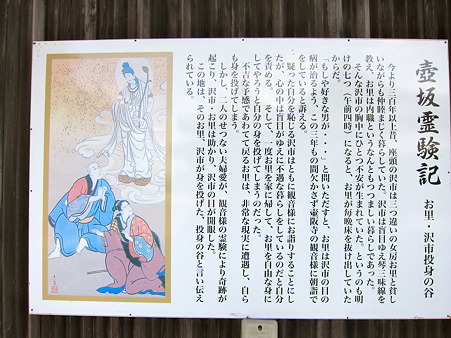 壺坂霊験記
お里・沢市投身の谷
今より三百年以上昔、座頭の沢市は三つ違いの女房お里と貧し
いながらも仲睦まじく暮らしていた。沢市は盲目ゆえ琴三味線を
教え、お里は内職というなんともつつましい暮らしであった。
そんな沢市の胸中にひとつ不安が生まれていた。というのも明
けの七つ(午前四時)になると、お里が毎晩床を抜け出していた
からだ。
「もしや好きな男が・・・」と問いただすと、お里は沢市の目の
病が治るよう、この三年もの間欠かさず壷阪寺の観音様に朝詣で
をしていると訴える。
疑った自分を恥じる沢市はともに観音様にお詣りすることにし
たが、心の中は盲目がゆえに不遇な暮らしをしているのだと自分
を責める。そして、一度お里を家に帰して、お里を自由な身に
してやろうと自分の身を投げてしまうのだった。
不吉な予感であわてて戻るお里は、非常な現実に遭遇し、自ら
も身を投げてしまう。
しかし、二人のせつない夫婦愛が、観音様の霊験により奇跡が
起こり、沢市・お里は助かり、沢市の目が開眼した。
この地は、そのお里、沢市が身を投げた、投身の谷と言い伝え
られている。